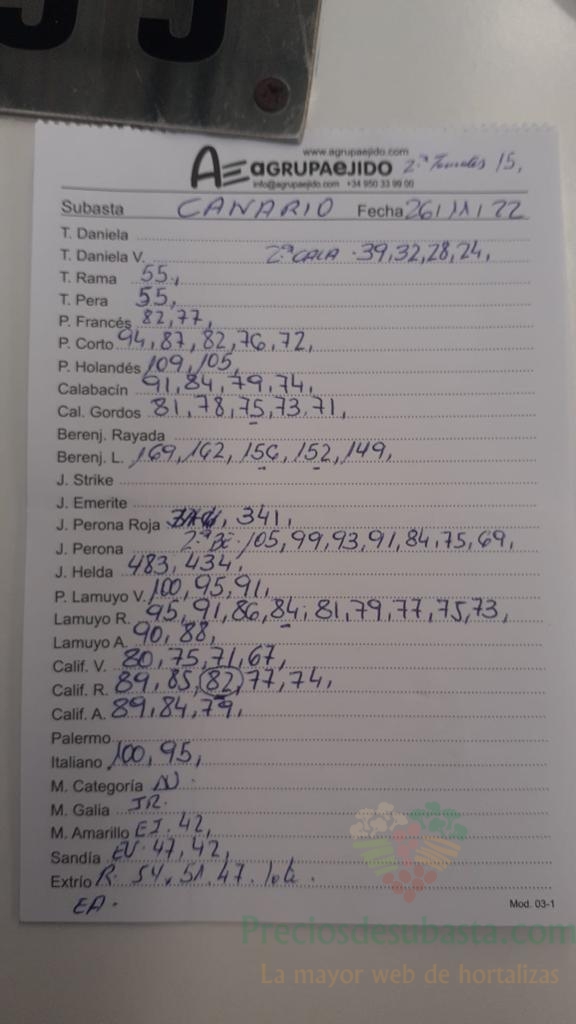 55
www.agrupaejido.com
AGRUPAEJIDO 2ª Tomates 15,
info@agrupaejido.com +34 950 33 99 00
Subasta CANARIO Fecha 26/11/22
T. Daniela
T. Daniela V. 2ª CALA · 39, 32, 28, 24,
T. Rama 55,
T. Pera 55,
P. Francés 82, 77,
P. Corto 94, 87, 82, 76, 72,
P. Holandés 109, 105,
Calabacín 91, 84, 79, 74,
Cal. Gordos 81, 78, 75, 73, 71,
Berenj. Rayada
Berenj. L. 169, 162, 156, 152, 149,
J. Strike
J. Emerite
J. Perona Roja 341,
J. Perona 2ª BE· 105, 99, 93, 91, 84, 75, 69,
J. Helda 483, 434,
P. Lamuyo V. 100, 95, 91,
Lamuyo R. 95, 91, 86, 84, 81, 79, 77, 75, 73,
Lamuyo A. 90, 88,
Calif. V. 80, 75, 71, 67,
Calif. R. 89, 85, 82, 77, 74,
Calif. A. 89, 84, 79,
Palermo
Italiano 100, 95,
M. Categoría N ·
M. Galia JR·
M. Amarillo EJ· 42,
Sandía EV· 47, 42,
Extrío R· 54, 51, 47.
EA·
Mod. 03-1
Preciosdesubasta.com
La mayor web de hortalizas